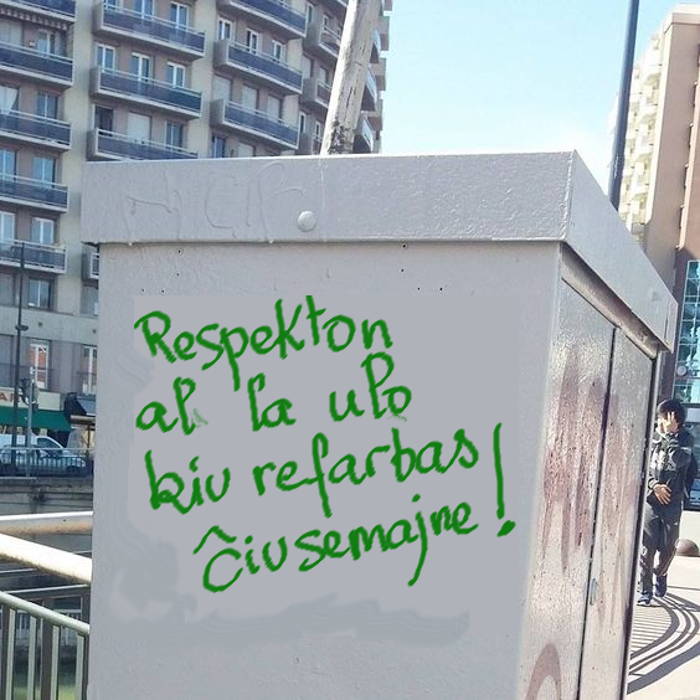 Respekton
al la ulo
kiu refarbas
ĉiusemajne!